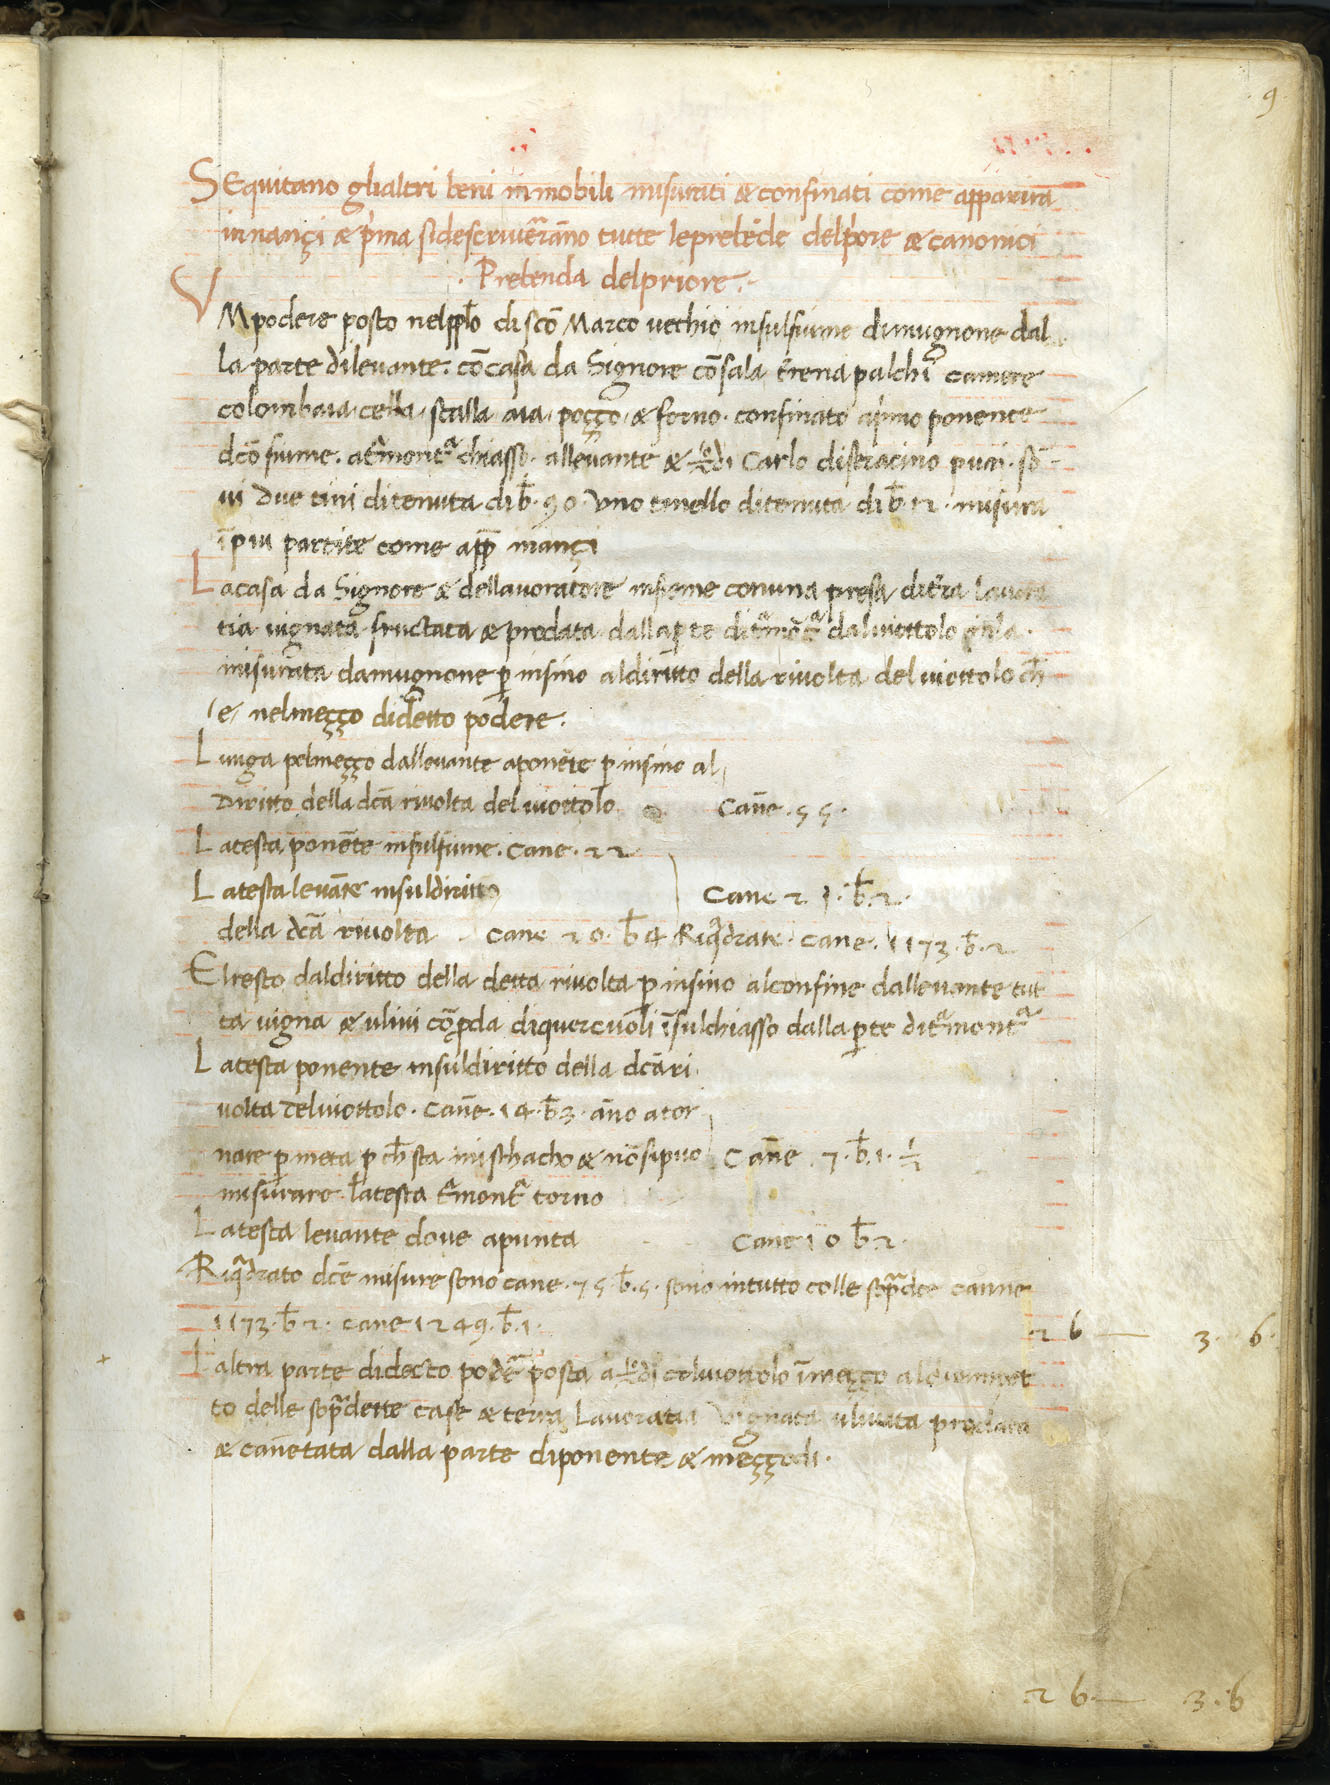 9
SEquitano glialtri beni immobili misurati & confinati come apparira
innançi & p̄ma sidescriverāno tutte leprebēde delp̄ore & canonici
· Prebenda delpriore ·
VMpodere posto nelpp̄lo di scō Marco vechio insulfiume dimugnone dal
la parte dilevante. cōcasa da Signore cōsala t̄rena palchi camere
colombaia · cella · stalla · aia · poçço · & forno · confinato ap̄mo ponente
dc̄o fiume. at̄mont^a chiasso · allevante & ½di Carlo diseracino pucci · sō
vi due tini ditenuta di b̄ · 90 · vno tinello ditenuta di b̄ 12 · misura
ī piu partite come app̄ inançi
Lacasa da Signore & dellavoratore insieme conuna presa dit̄ra lavora
tia vignata fructata & prodata dallap̄te dit^amōt^a dalviottolo
misurata damugnone p̄ insino aldiritto della rivolta del viottolo ch̄
/e/ nelmeçço didetto podere ·
Lunga pelmeçço dallevante aponēte p̄ insino al
diritto della dc̄a rivolta del viottolo Cane · 55 ·
Latesta ponēte insulfiume · cane · 22
Latesta levāte insuldiritto Cane 21 · b̄ 2 ·
della dc̄a rivolta cane 20 · b̄ 4 Riq^adrate · cane · 1173 · b̄ · 2
Elresto daldiritto della detta rivolta p̄ insino alconfine dallevante tut
ta vigna & ulivi cō p̄da diquercuoli īsulchiasso dalla p̄te dit^amont^a
Latesta ponente insuldiritto della dc̄a ri
volta delviottolo · cane · 14 · b̄ 3 · āno ator
nare p̄ meta p ch̄ sta mischacho & nōsipuo Cane · 7 · b̄ · 1 · ½
misurare latesta t̄mont^a torno
Latesta levante dove apunta Cane 10 b̄ 2 ·
Riq^adrato dc̄e misure sono cane · 75 · b̄ · 5 · sono intutto colle sop^adce canne
1173 · b̄ 2 · cane 1249 · b̄ · 1 · 26 — 3 · 6 ·
Laltra parte didecto podē posta a ½di delviottolo īmeçço
to delle sop^adette case & terra Lavoratia vignata ulivata prodata
& canetata dalla parte diponente & meççodi ·
26 — 3 · 6